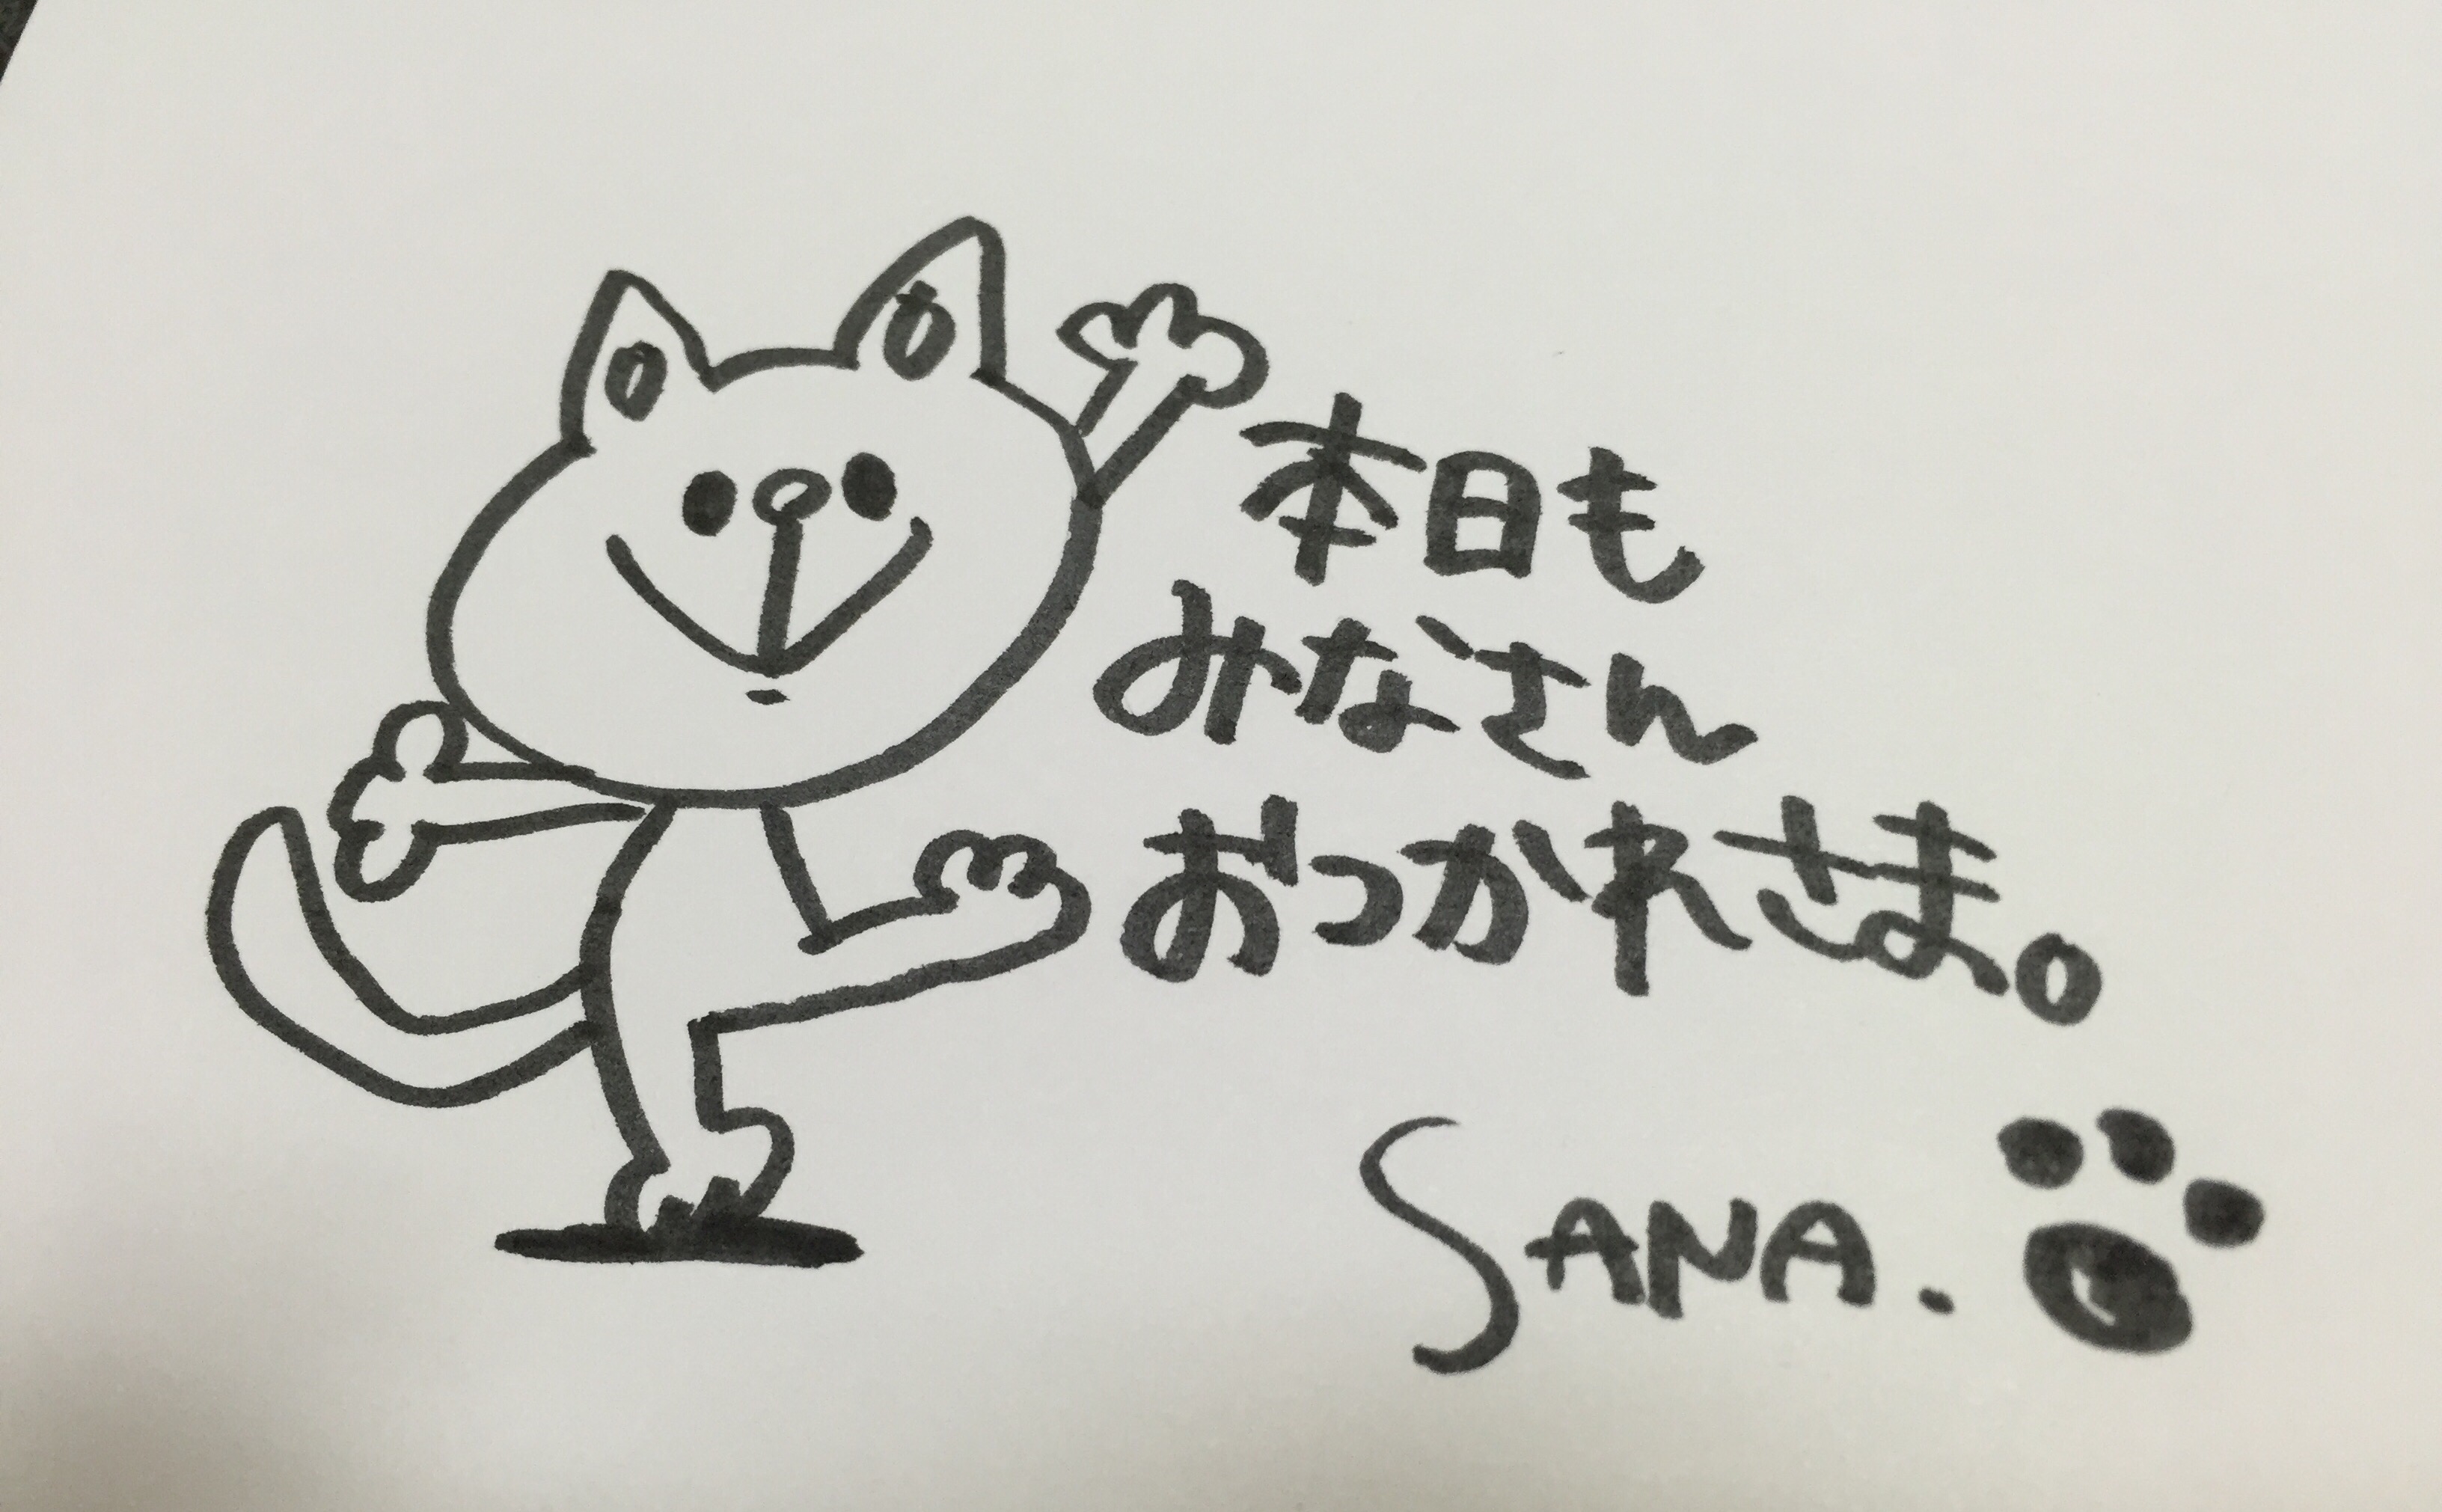 本日も
みなさん
おつかれさま。
SANA.